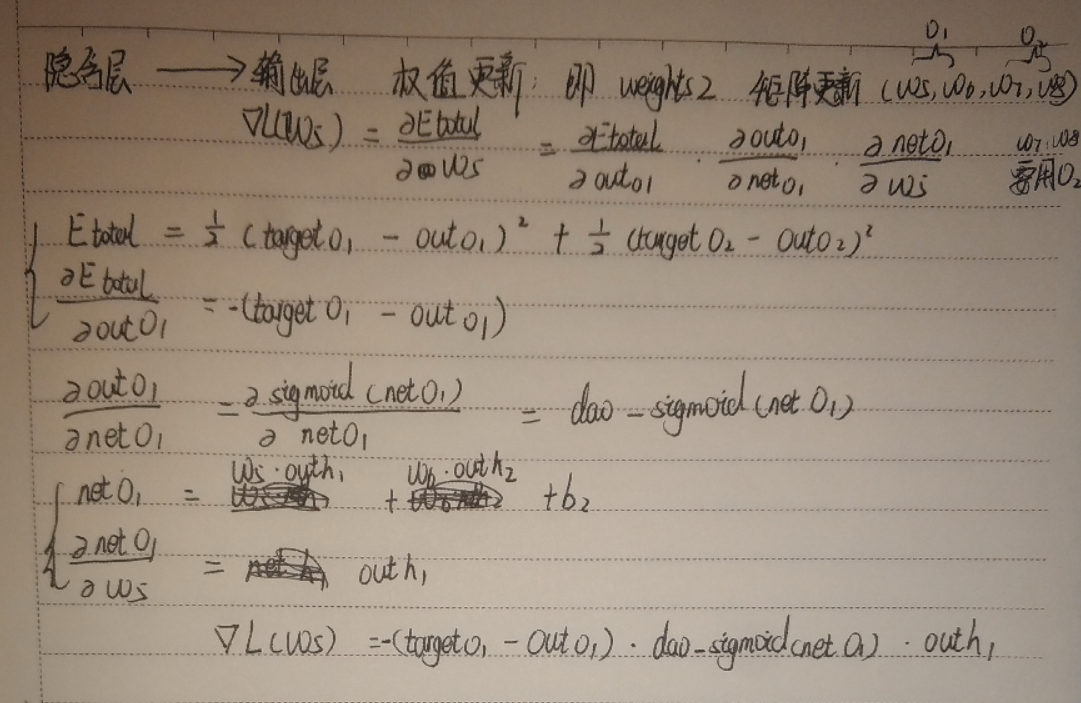 O₁ O₂
隐含层 ⟶ 输出层 权值更新: 即 weights2 矩阵更新 (w5, w6, w7, w8)
∇L(w5) = ∂Etotal/∂w5 = ∂Etotal/∂outo1 · ∂outo₁/∂neto₁ · ∂netO₁/∂w5 w7.w8 要用O₂
Etotal = ½ (targetO₁ - outO₁)² + ½ (targetO₂ - outO₂)²
∂Etotal/∂outO₁ = -(targetO₁ - outo₁)
∂outO₁/∂netO₁ = ∂sigmoid(netO₁)/∂netO₁ = dao-sigmoid(netO₁)
netO₁ = w5·outh₁ + w6·outh₂ + b₂
∂netO₁/∂w5 = outh₁
∇L(w5) = -(targeto₁ - outo₁) · dao-sigmoid(netO₁) · outh₁